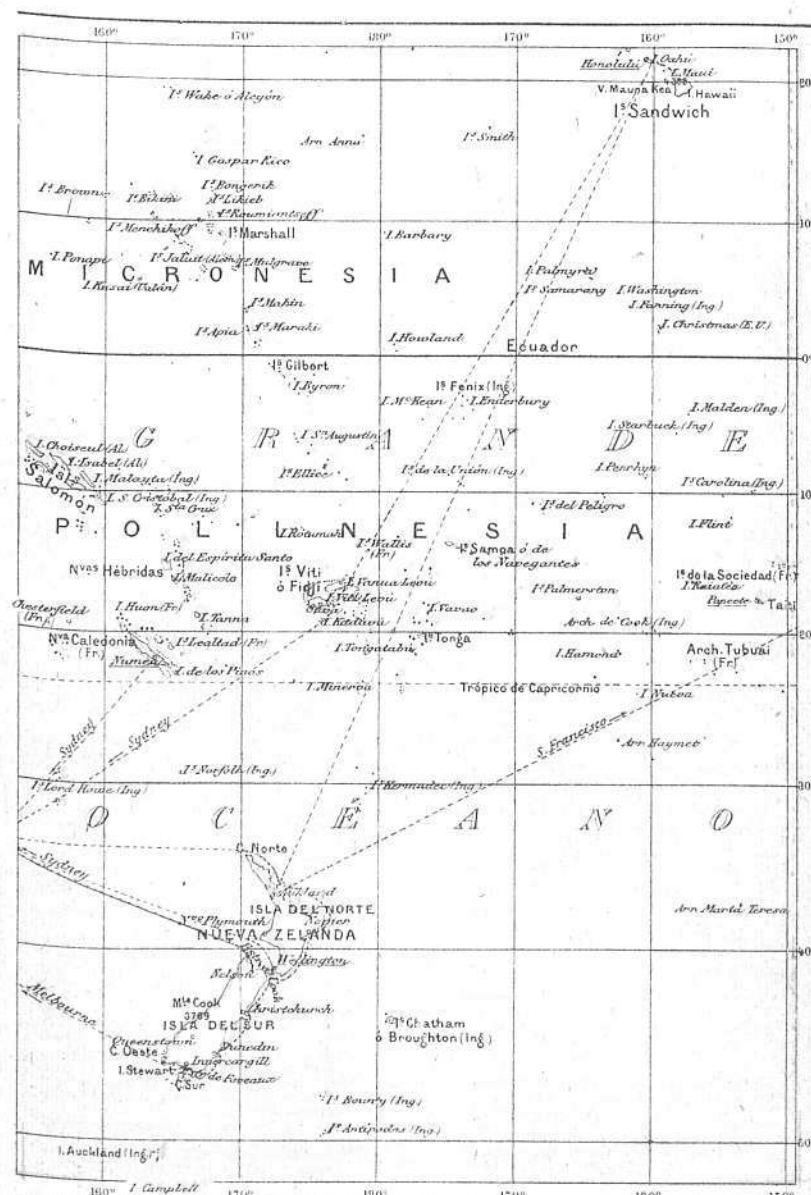 160° 170° 180° 170° 160° 150°
Honolulu I. Oahu
I. Maui
V. Mauna Kea I. Hawaii
Iˢ Sandwich
20
Iˢ Wake ó Alcyón
Arn Annú
Iˢ Smith
I Gaspar Rico
Iˢ Brown
Iˢ Bikini
Iˢ Rongerik
Iˢ Likieb
Iˢ Roumiantseff
Iˢ Menchikoff
Iˢ Marshall
I. Barbary
10
I. Ponape
Iˢ Jaluit Mulgrave
MICRONESIA
I. Kusai (Ualán)
I. Palmyra
Iˢ Samarang
I. Washington
I. Fanning (Ing.)
Iˢ Makin
Iˢ Apia
Iˢ Maraki
I. Christmas (E.U.)
I. Howland
Ecuador
0°
Iˢ Gilbert
I. Byron
Iˢ Fenix (Ing)
I. Mᶜ Kean
I. Enderbury
I. Malden (Ing.)
I. Starbuck (Ing)
GRANDE
I Sⁿ Augustin
I. Choiseul (Al)
I. Isabel (Al)
I. Malayta (Ing)
Islas Salomón
Iˢ Ellice
Iˢ de la Unión (Ing)
I. Penrhyn
Iˢ Carolina (Ing)
10
I. S. Cristóbal (Ing)
I. Sᵗᵃ Cruz
Iˢ del Peligro
I. Flint
POLINESIA
I. Rotumah
Iˢ Wallis
(Fr)
Iˢ Samoa ó de
los Navegantes
I. del Espiritu Santo
Nᵛᵃˢ Hébridas
I. Malicola
Iˢ Viti
ó Fidji
I. Vanua Levu
I. Viti Levu
Suva
I. Kadavu
Iˢ de la Sociedad (Fr)
I. Raiatea
Papeete
Iˢ Palmerston
Chesterfield
(Fr)
I. Huon (Fr)
I. Tanna
I. Vavao
Arch. de Cook (Ing)
20
Nᵛᵃ Caledonia
(Fr.)
Iˢ Lealtad (Fr)
Numea
I. de los Pinos
I. Tongatabu
Iˢ Tonga
I. Hamond
Arch. Tubuai
(Fr)
I. Minerva
Trópico de Capricornio
Sydney
Sydney
S. Francisco
Arn Haymet
I. Norfolk (Ing.)
Iˢ Lord Howe (Ing)
Iˢ Kermadec (Ing)
30
OCEANO
C. Norte
Sydney
Auckland
ISLA DEL NORTE
Nᵛᵒ Plymouth
Napier
Arn Marta Teresa
NUEVA ZELANDA
40
Wellington
Nelson
Cook
Melbourne
Mᵗᵉ Cook
3769
Christchurch
ISLA DEL SUR
Iˢ Chatham
ó Broughton (Ing)
Queenstown
C. Oeste
Dunedin
Invercargill
I. Stewart
de Foveaux
C. Sur
Iˢ Bounty (Ing)
Iˢ Antipodas (Ing)
50
I. Auckland (Ing)
I Campbell
160° 170° 180° 170° 160° 150°